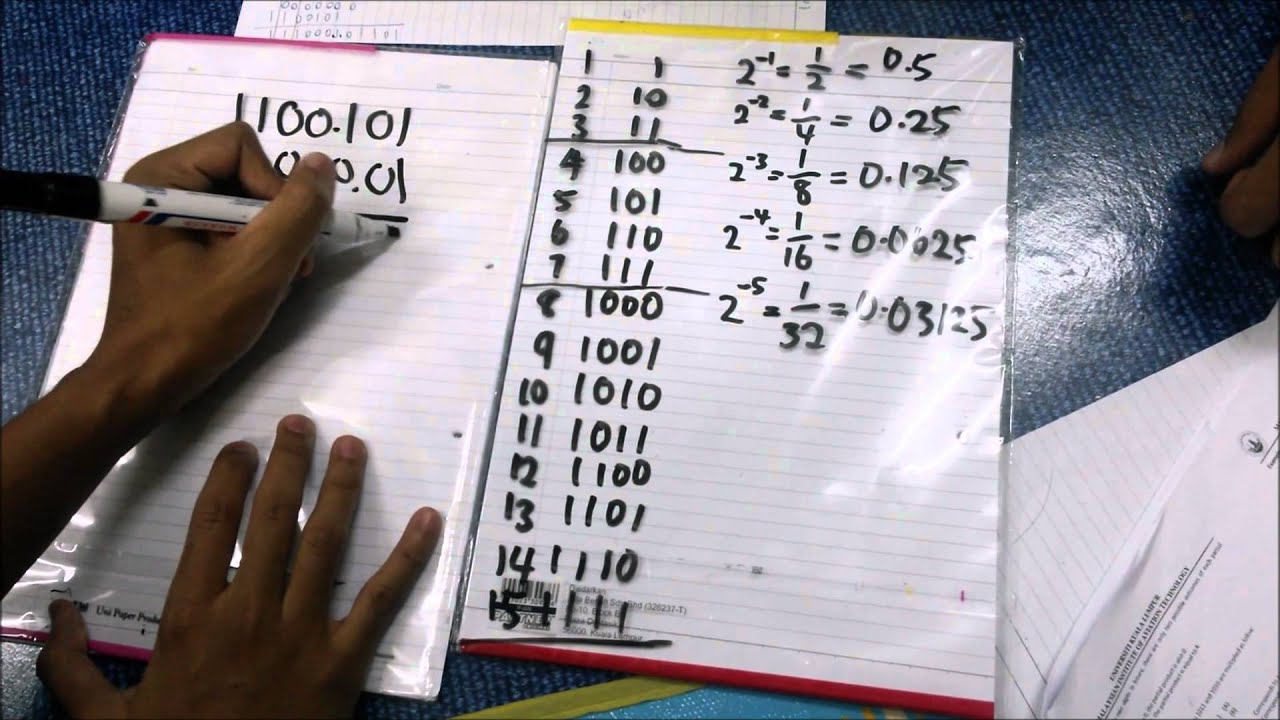 1100.101
0.01
1 1
2 10
3 11
4 100
5 101
6 110
7 111
8 1000
9 1001
10 1010
11 1011
12 1100
13 1101
14 1110
15 1111
2⁻¹ = 1/2 = 0.5
2⁻² = 1/4 = 0.25
2⁻³ = 1/8 = 0.125
2⁻⁴ = 1/16 = 0.0625
2⁻⁵ = 1/32 = 0.03125
Uni Paper
(328237-T)
Kuala Lumpur
UNIVERSITI KUALA LUMPUR
MALAYSIAN INSTITUTE OF AVIATION TECHNOLOGY